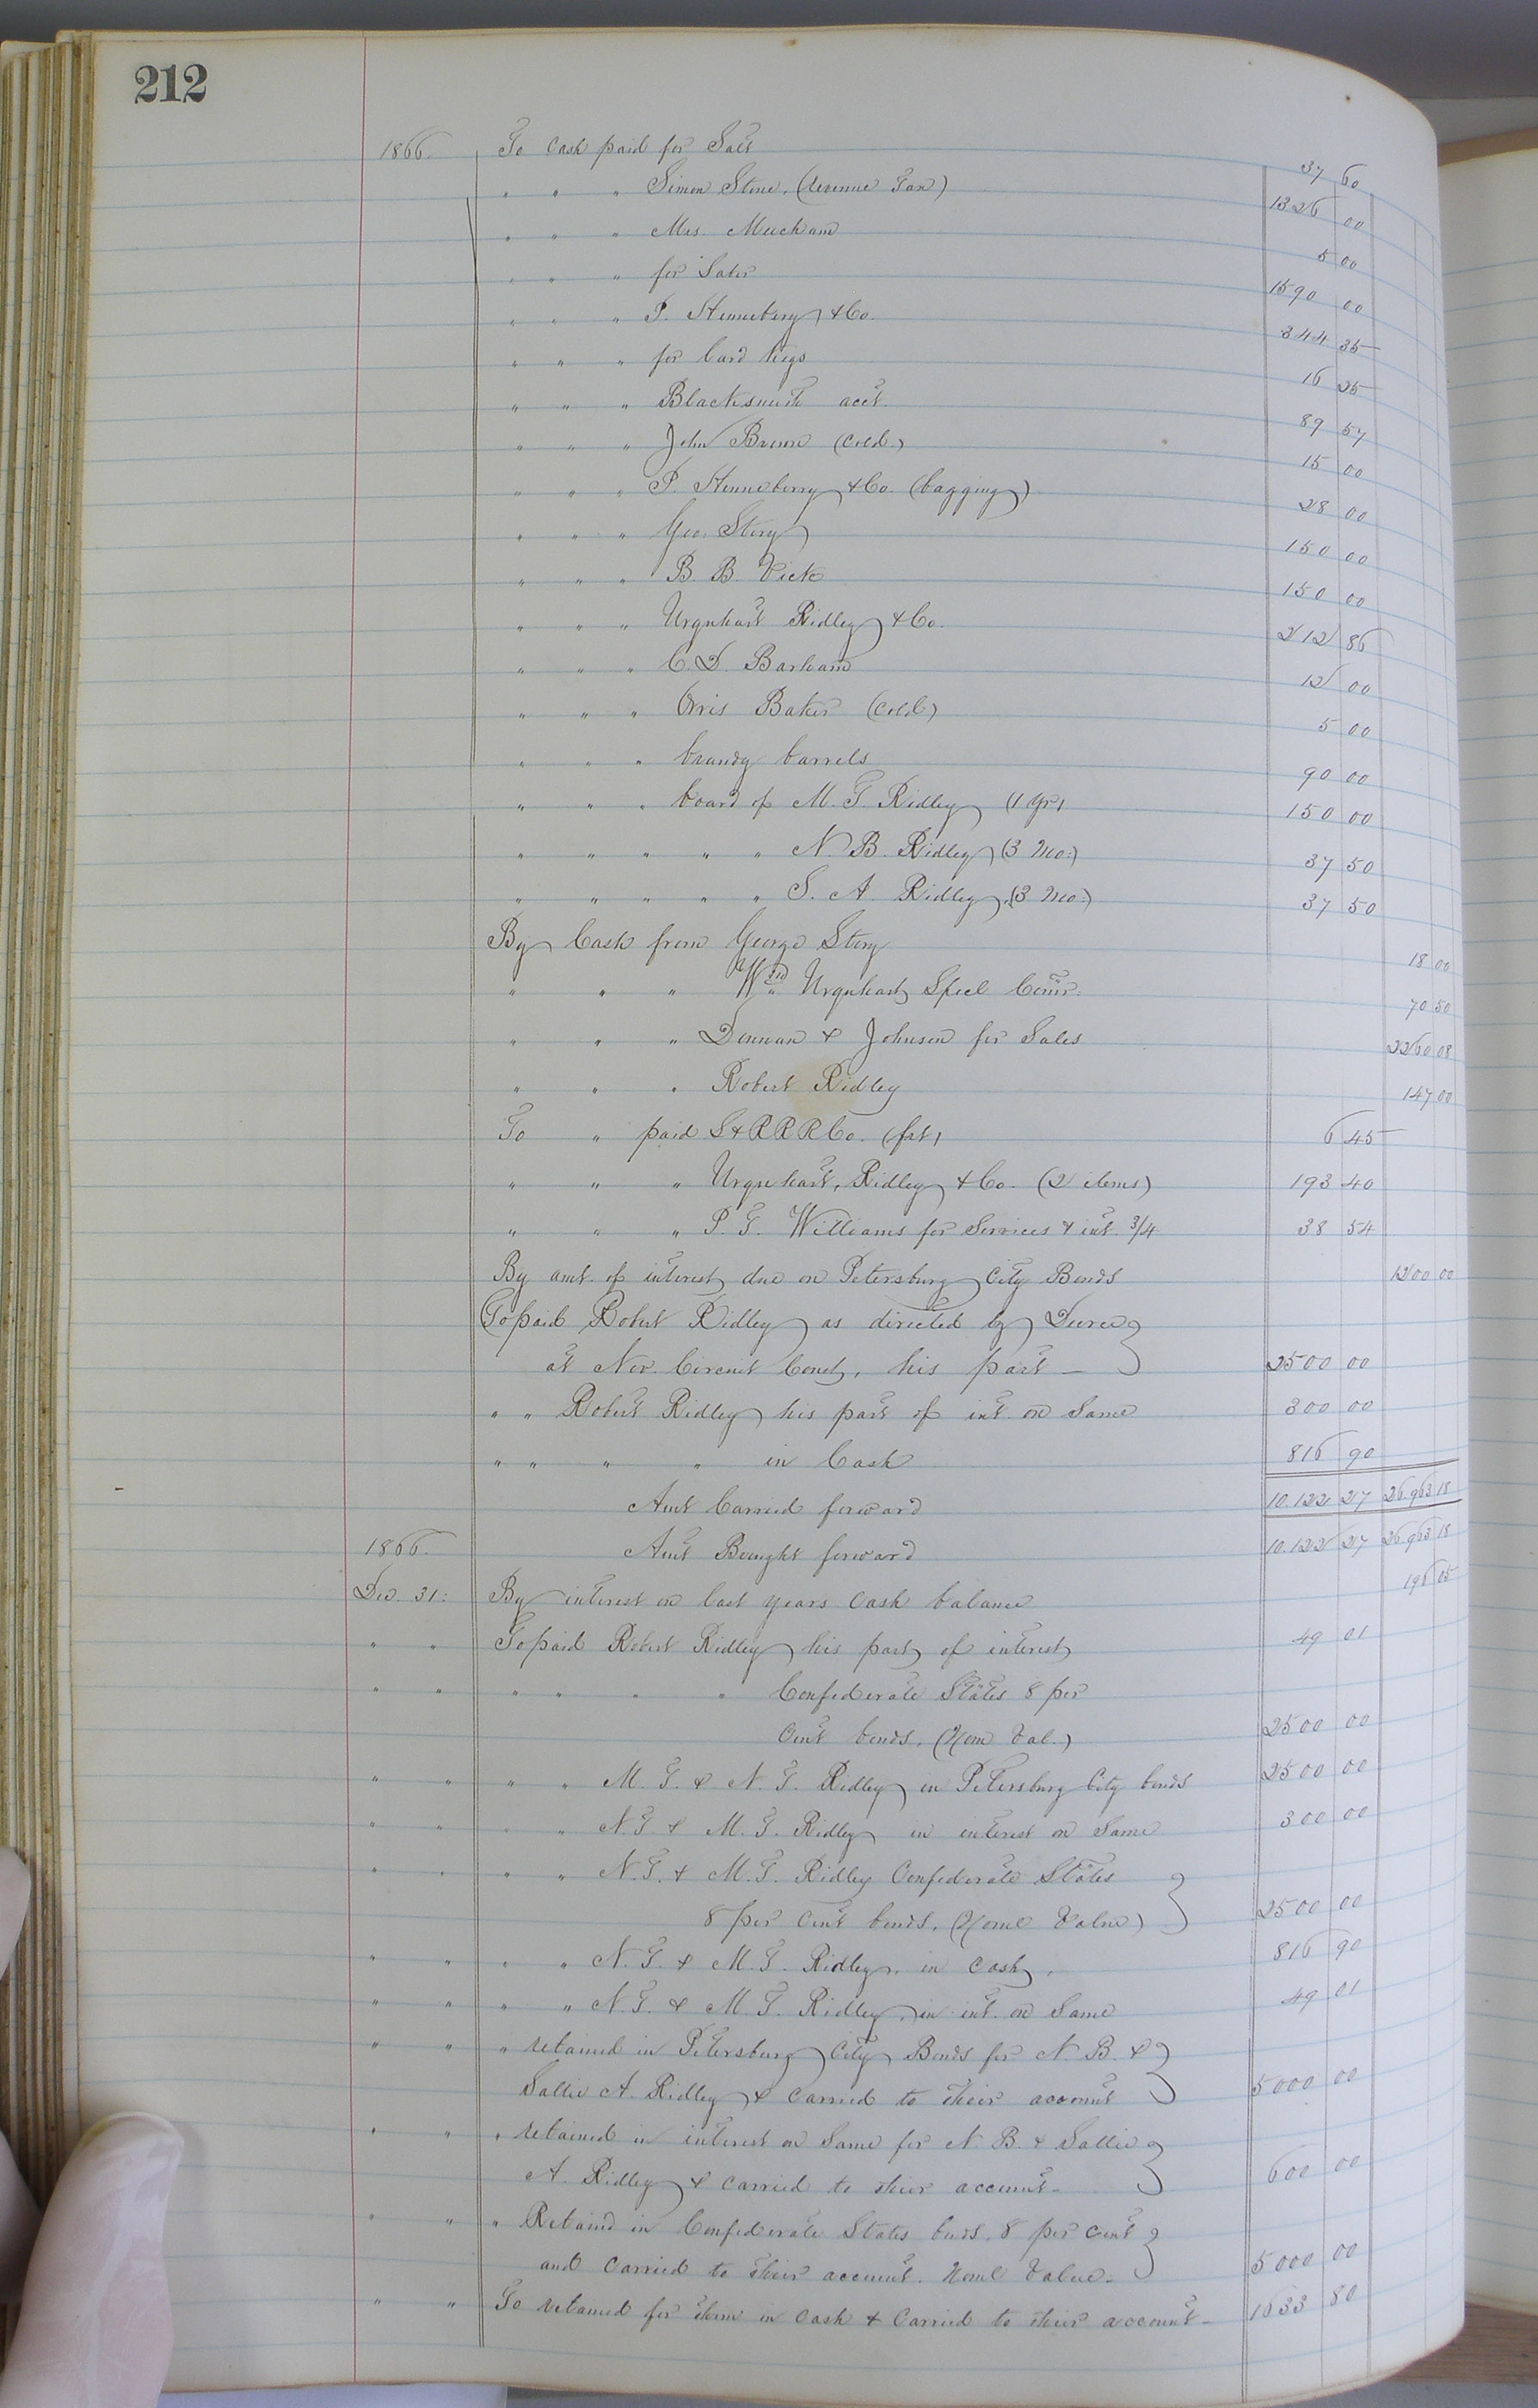 212
1866. To Cash paid for Salt 37 60
" " " Simon Stone, (Revenue Tax) 1326 00
" " " Mrs. Meacham 5 00
" " " for 1590 00
" " " P. Henneberry & Co. 344 35
" " " for Lard kegs 16 25
" " " Blacksmith acct. 89 57
" " " John Brown (Cold.) 15 00
" " " P. Henneberry & Co. (bagging) 28 00
" " " Geo. Story 150 00
" " " B. B. Vick 150 00
" " " Urquhart Ridley & Co. 212 86
" " " C. D. Barham 12 00
" " " Orris Baker (Cold) 5 00
" " " brandy barrels 90 00
" " " board of M. T. Ridley (1 yr) 150 00
" " " " " N. B. Ridley (3 Mo:) 37 50
" " " " " S. A. Ridley, (3 Mo:) 37 50
By Cash from George Story 18 00
" " " Urquhart Specl Comr. 70 50
" " " Donnan & Johnson for Sales 2260 08
" " " Robert Ridley 147 00
To " paid S & R R R Co. (frt) 6 45
" " " Urquhart, Ridley & Co. (2 items) 193 40
" " " P. T. Williams for Services & int. 3/4 38 54
By amt. of interest due on Petersburg City Bonds 1200 00
To paid Robert Ridley as directed by Decree
at Nov. Circuit Court, his part — 2500 00
" " Robert Ridley his part of int. on Same 300 00
" " " " in Cash 816 90
Amt Carried forward 10.122 27 26.963 18
1866. Amt Brought forward 10.122 27 26.963 18
Dec. 31: By interest on last years Cash balance 196 05
" " To paid Robert Ridley his part of interest 49 01
" " " " " " Confederate States 8 per
Cent bonds, (Nom Val.) 2500 00
" " " " M. T. & N. T. Ridley in Petersburg City bonds 2500 00
" " " " N. T. & M. T. Ridley in interest on Same 300 00
" " " " N. T. & M. T. Ridley Confederate States
8 per Cent bonds, (Noml Value) 2500 00
" " " " N. T. & M. T. Ridley, in Cash, 816 90
" " " " N. T. & M. T. Ridley, in int. on Same 49 01
" " " retained in Petersburg City Bonds for N. B. &
Sallie A. Ridley & Carried to their account 5000 00
" " " retained in interest on Same for N. B. & Sallie
A. Ridley & Carried to their account - 600 00
" " " Retained in Confederate States bonds, 8 per Cent
and Carried to their account. Noml Value - 5000 00
" " To retained for them in Cash & Carried to their account - 1633 80